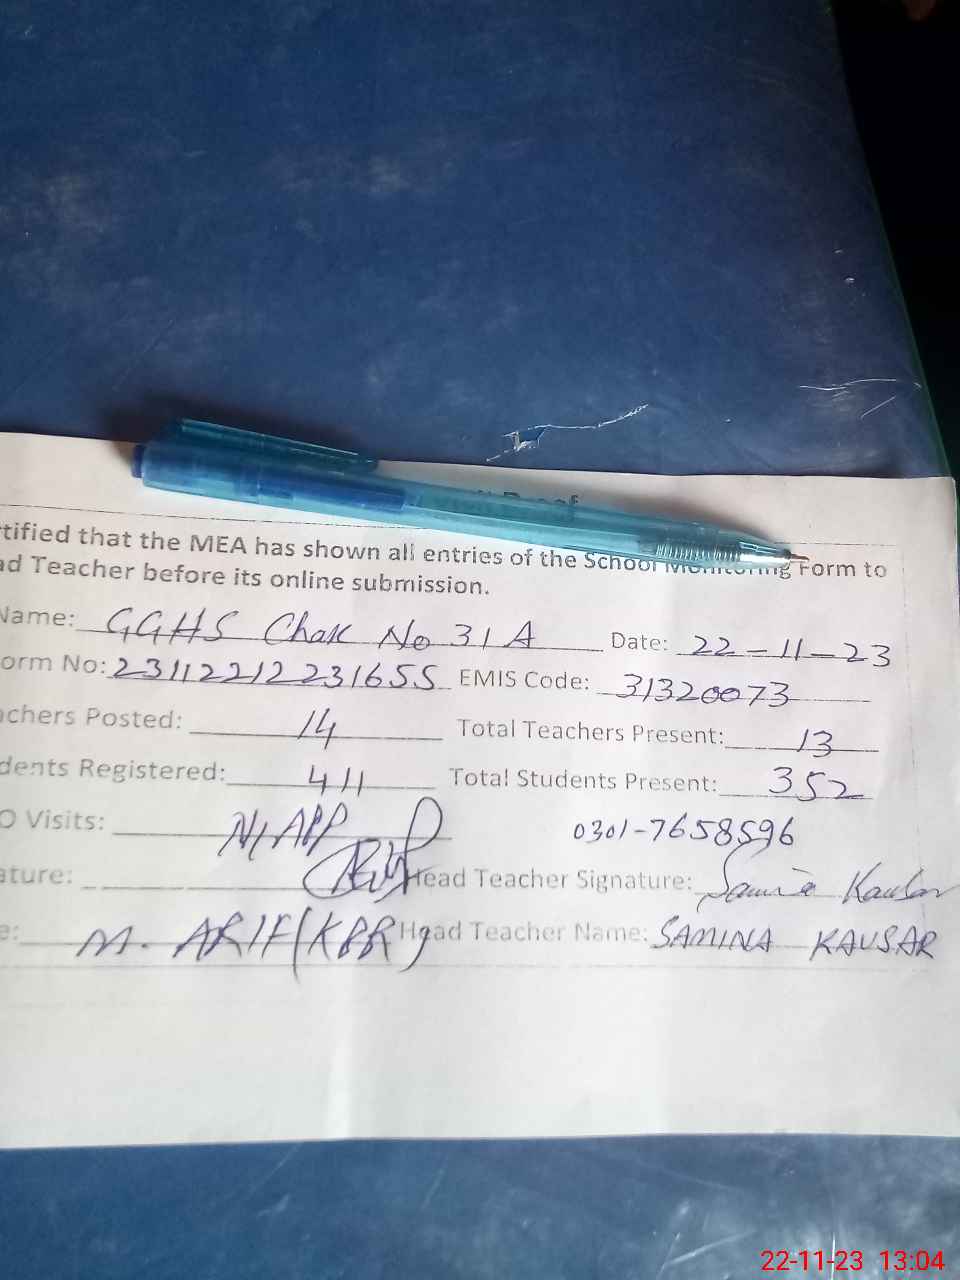 Proof
rtified that the MEA has shown all entries of the School Monitoring Form to
ad Teacher before its online submission.
Name: GGHS Chak No 31A Date: 22-11-23
orm No: 2311221223165SS EMIS Code: 31320073
achers Posted: 14 Total Teachers Present: 13
dents Registered: 411 Total Students Present: 352
O Visits: N/APP 0301-7658596
ature: Head Teacher Signature: Samina Kausar
e: M. ARIF (KBR) Head Teacher Name: SAMINA KAUSAR
22-11-23 13:04